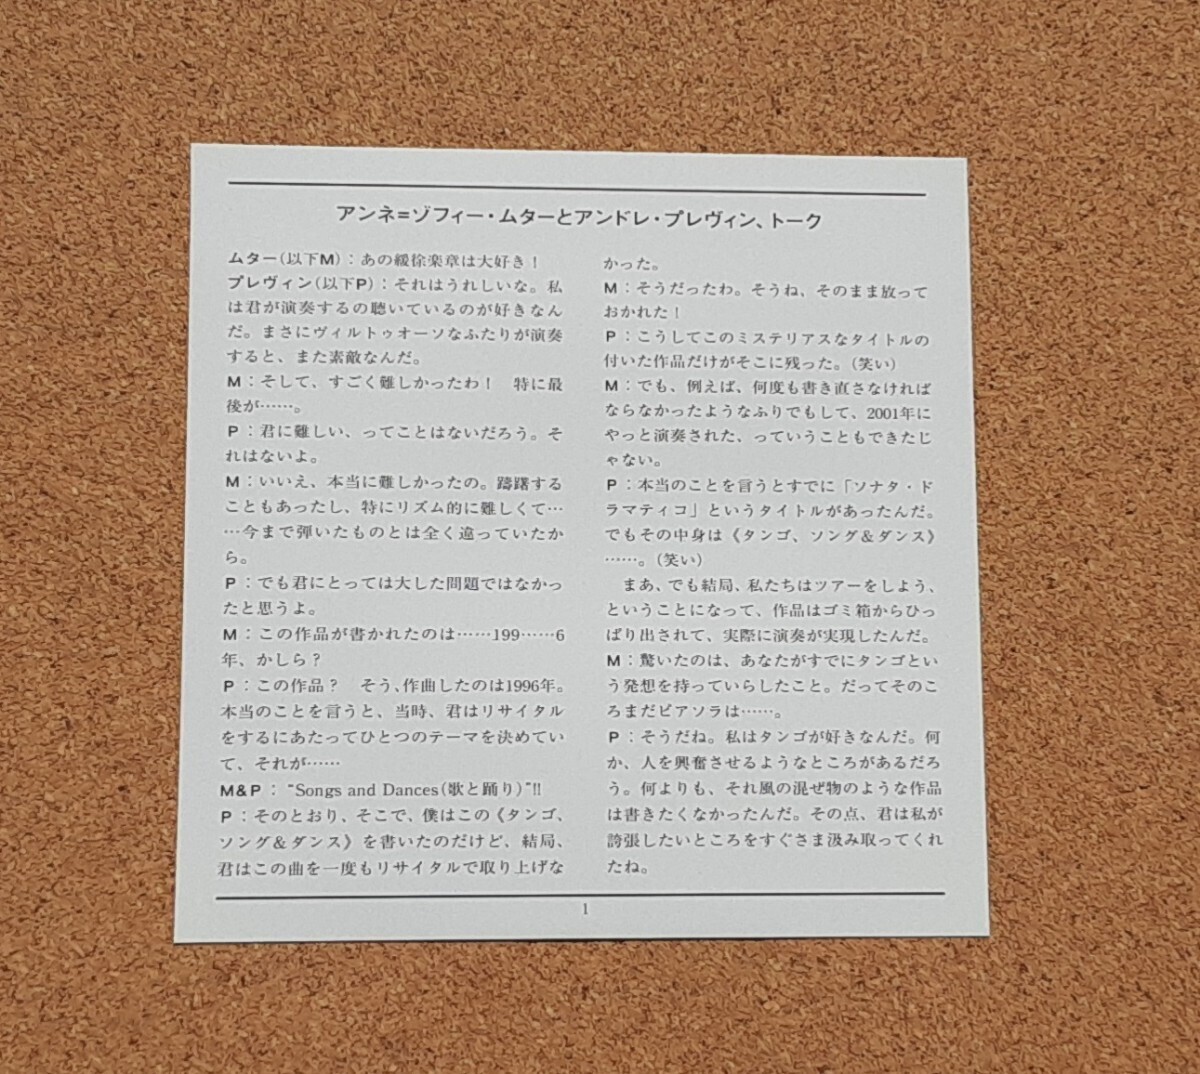 アンネ=ゾフィー・ムターとアンドレ・プレヴィン、トーク
ムター(以下M)：あの緩徐楽章は大好き！
プレヴィン(以下P)：それはうれしいな。私
は君が演奏するの聴いているのが好きなん
だ。まさにヴィルトゥオーソなふたりが演奏
すると、また素敵なんだ。
M：そして、すごく難しかったわ！　特に最
後が……。
P：君に難しい、ってことはないだろう。そ
れはないよ。
M：いいえ、本当に難しかったの。躊躇する
こともあったし、特にリズム的に難しくて…
…今まで弾いたものとは全く違っていたか
ら。
P：でも君にとっては大した問題ではなかっ
たと思うよ。
M：この作品が書かれたのは……199……6
年、かしら？
P：この作品？　そう、作曲したのは1996年。
本当のことを言うと、当時、君はリサイタル
をするにあたってひとつのテーマを決めてい
て、それが……
M&P："Songs and Dances(歌と踊り)"!!
P：そのとおり、そこで、僕はこの《タンゴ、
ソング&ダンス》を書いたのだけど、結局、
君はこの曲を一度もリサイタルで取り上げな
かった。
M：そうだったわ。そうね、そのまま放って
おかれた！
P：こうしてこのミステリアスなタイトルの
付いた作品だけがそこに残った。(笑い)
M：でも、例えば、何度も書き直さなければ
ならなかったようなふりでもして、2001年に
やっと演奏された、っていうこともできたじ
ゃない。
P：本当のことを言うとすでに「ソナタ・ド
ラマティコ」というタイトルがあったんだ。
でもその中身は《タンゴ、ソング&ダンス》
……。(笑い)
　まあ、でも結局、私たちはツアーをしよう、
ということになって、作品はゴミ箱からひっ
ぱり出されて、実際に演奏が実現したんだ。
M：驚いたのは、あなたがすでにタンゴとい
う発想を持っていらしたこと。だってそのこ
ろまだピアソラは……。
P：そうだね。私はタンゴが好きなんだ。何
か、人を興奮させるようなところがあるだろ
う。何よりも、それ風の混ぜ物のような作品
は書きたくなかったんだ。その点、君は私が
誇張したいところをすぐさま汲み取ってくれ
たね。
1